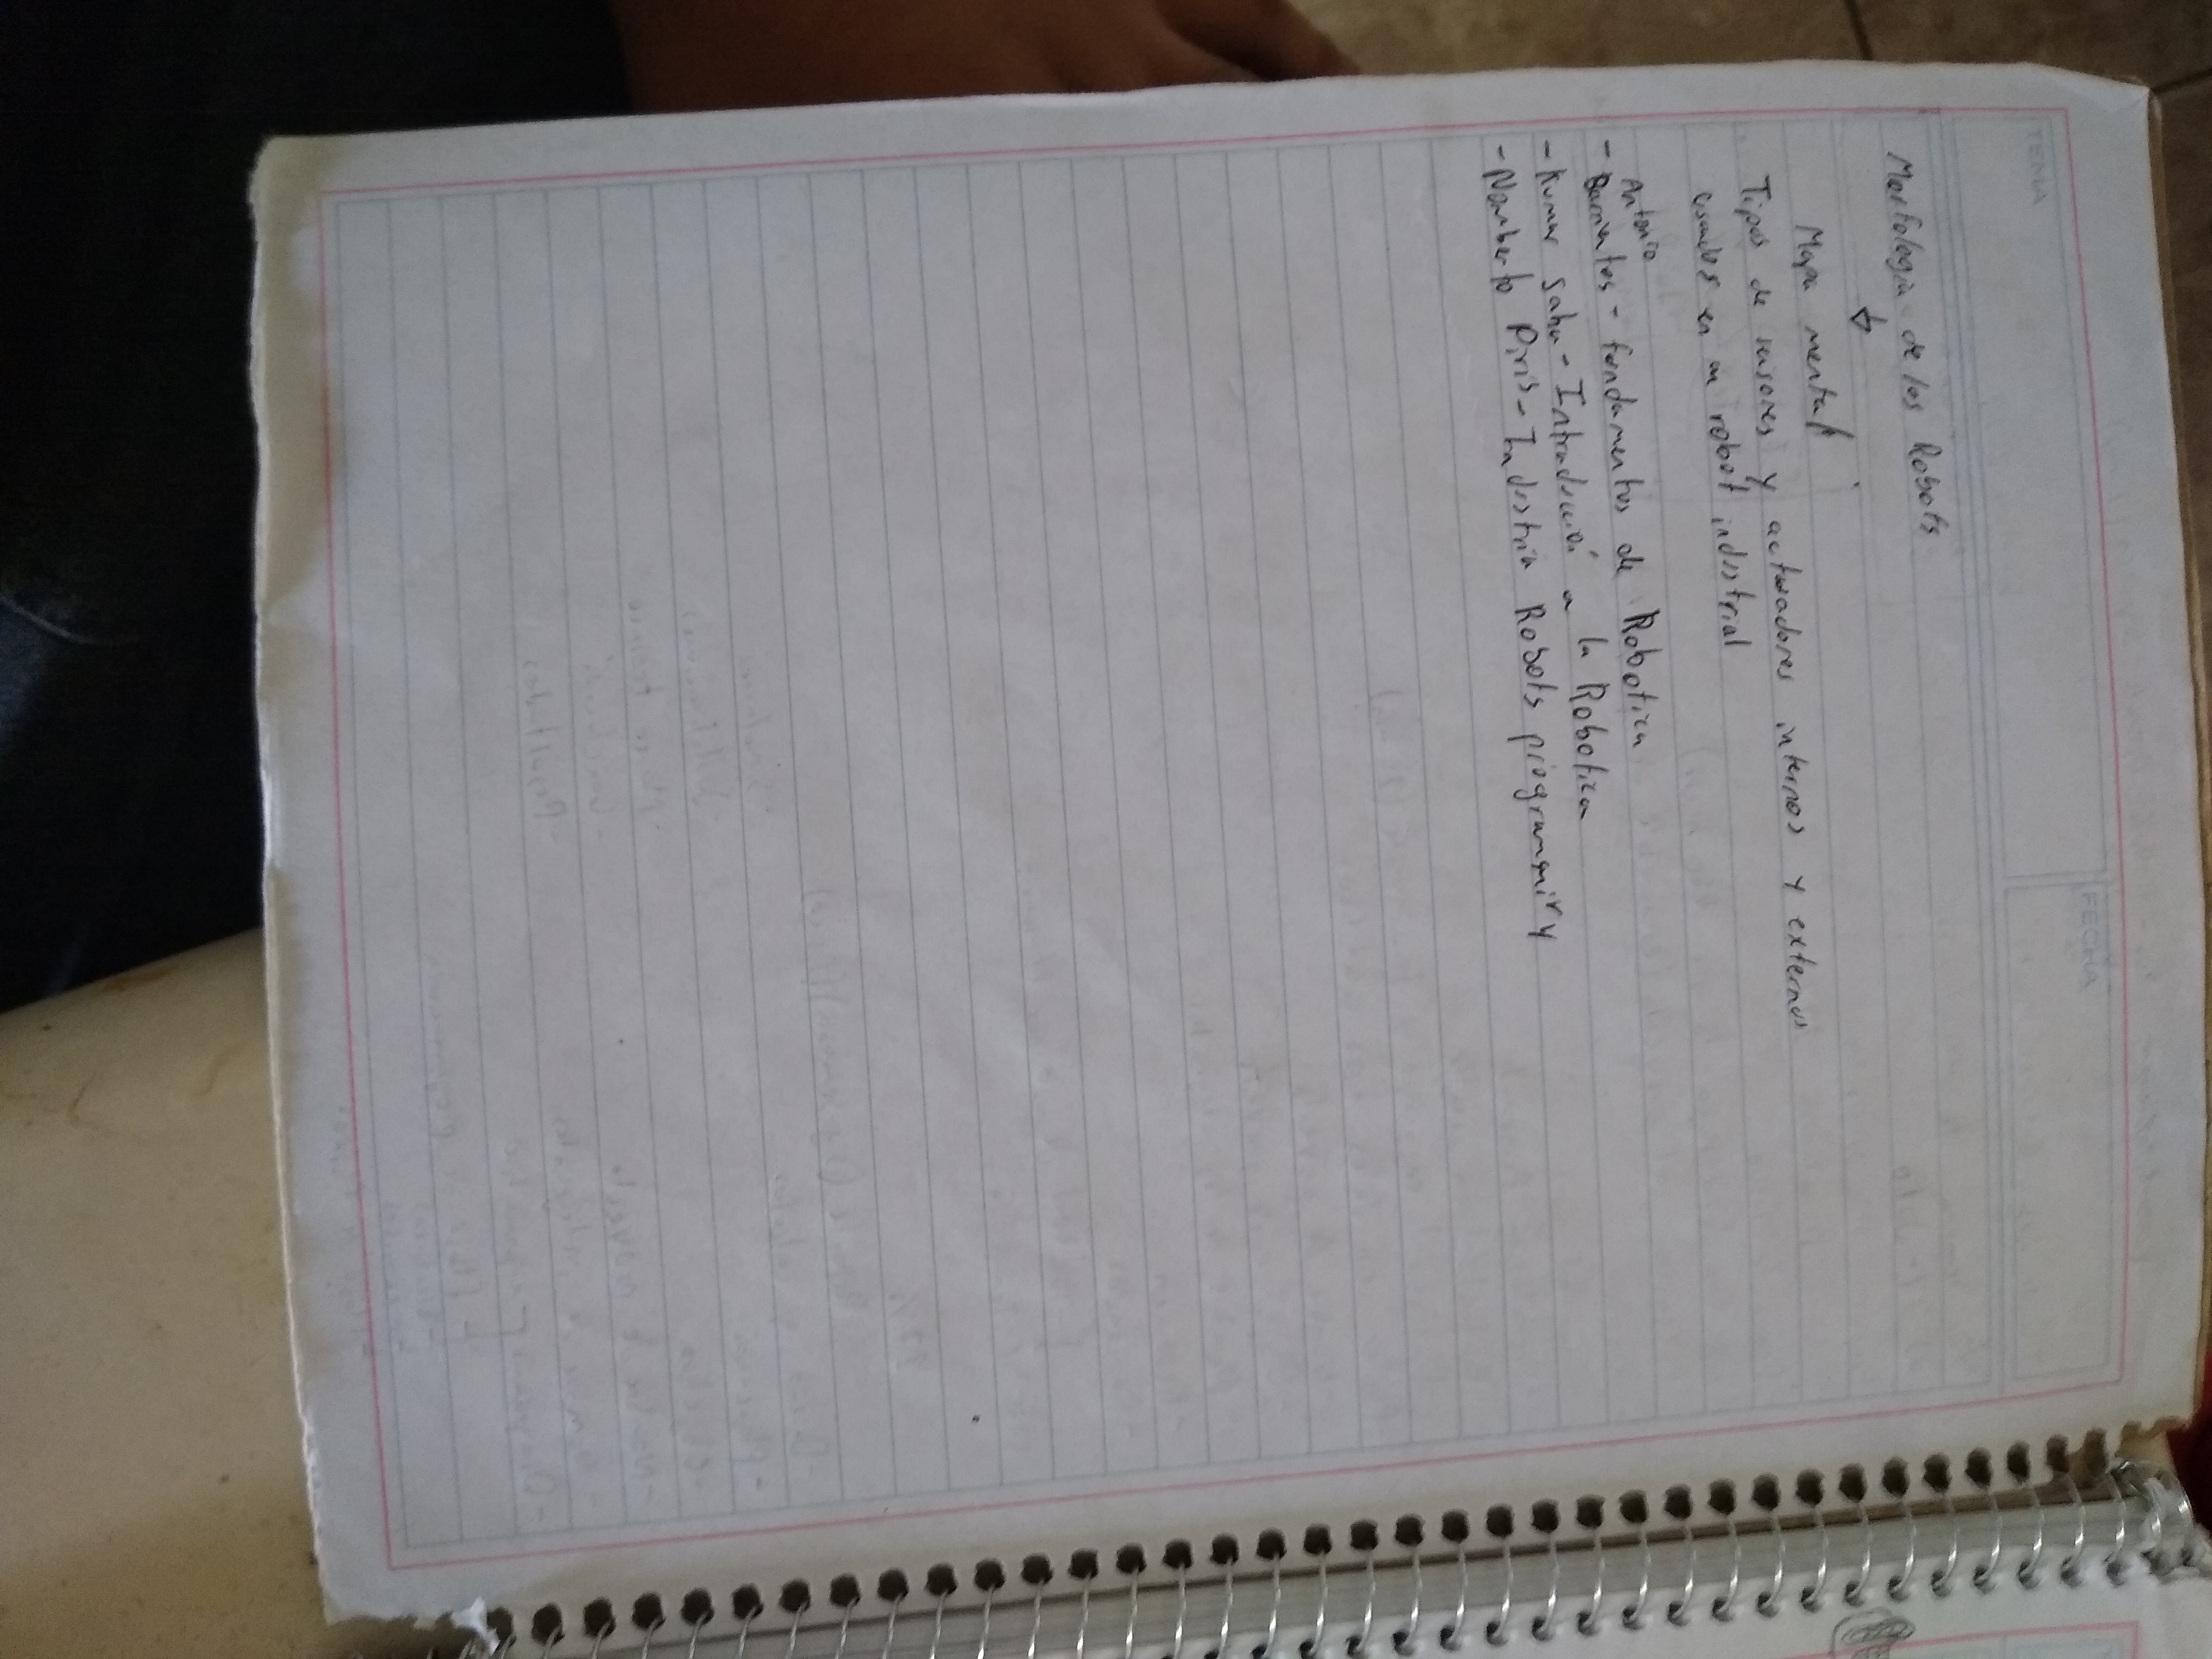 TEMA
FECHA
Morfología de los Robots
Mapa mental
Tipos de sensores y actuadores internos y externos
usados en un robot industrial
Antonio
- Barrientos - fundamentos de Robotica
- Kumar Saha - Introducción a la Robotica
- Nomberto Piris - Industria Robots programming